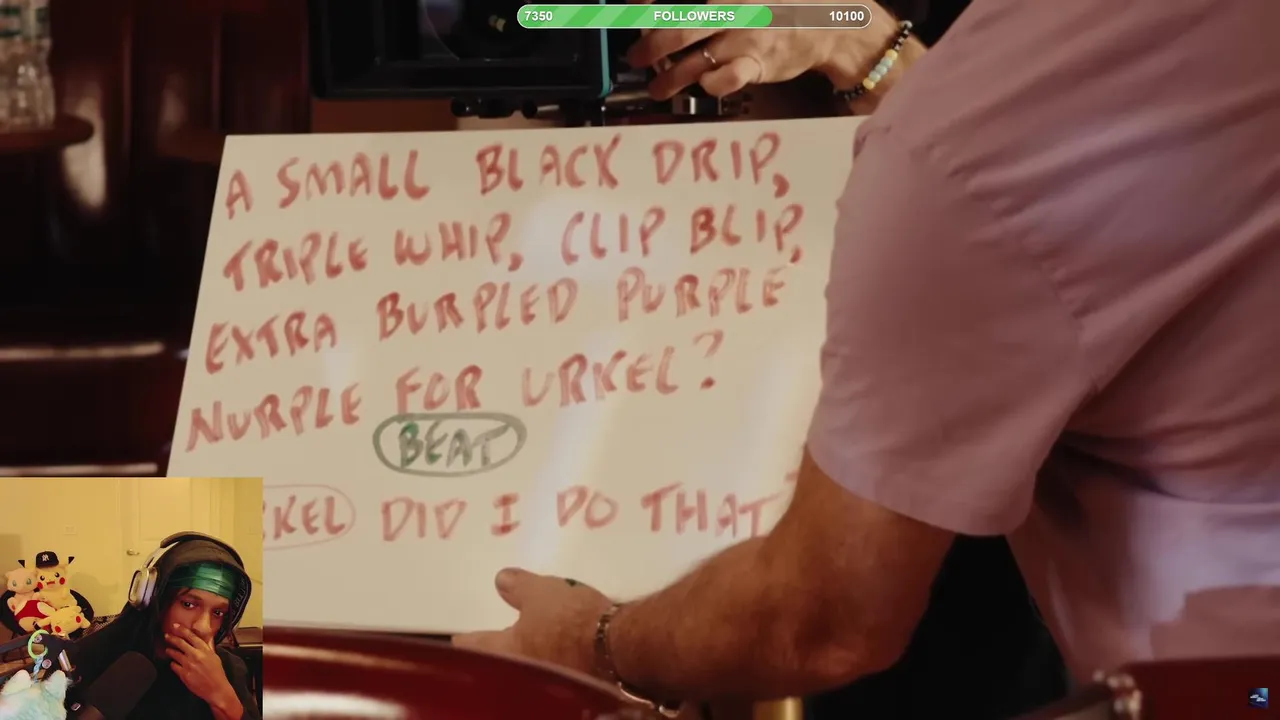 7350 FOLLOWERS 10100
A SMALL BLACK DRIP,
TRIPLE WHIP, CLIP BLIP,
EXTRA BURPLED PURPLE
NURPLE FOR URKEL?
BEAT
KEL DID I DO THAT